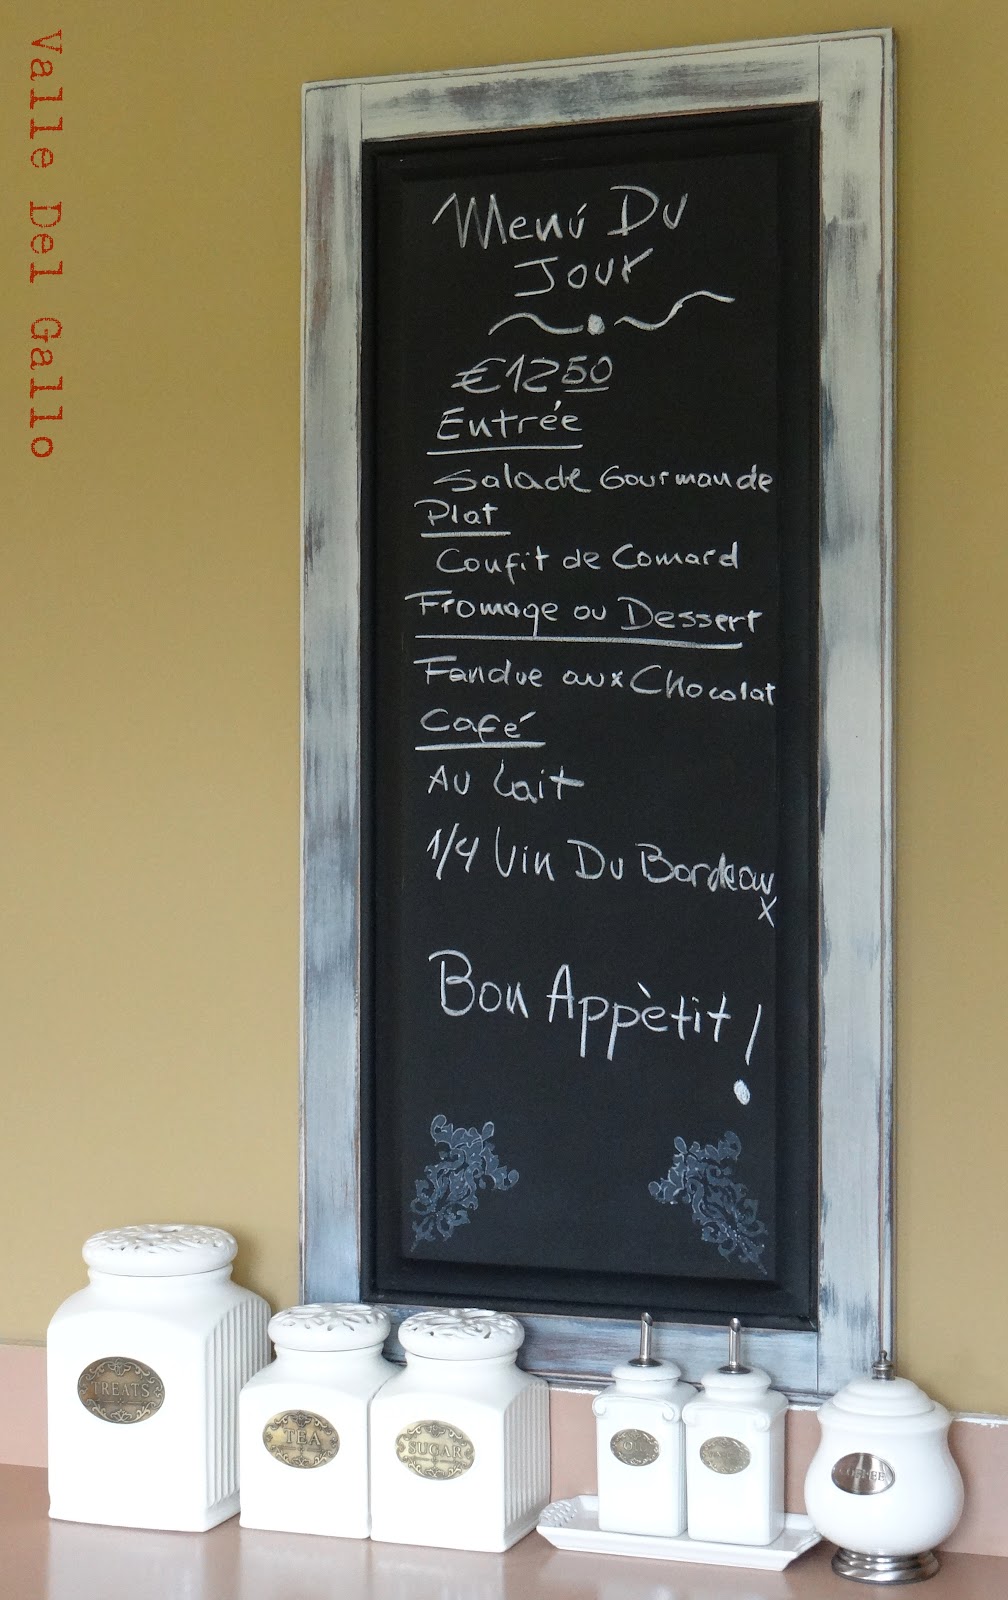 Valle Del Gallo
Menú Du
Jour
€12 50
Entrée
Salade Gourmande
Plat
Confit de Comard
Fromage ou Dessert
Fandue aux Chocolat
Café
Au Lait
1/4 Vin Du Bordeaux
Bon Appètit!
TREATS
TEA
SUGAR
OIL
COFFEE